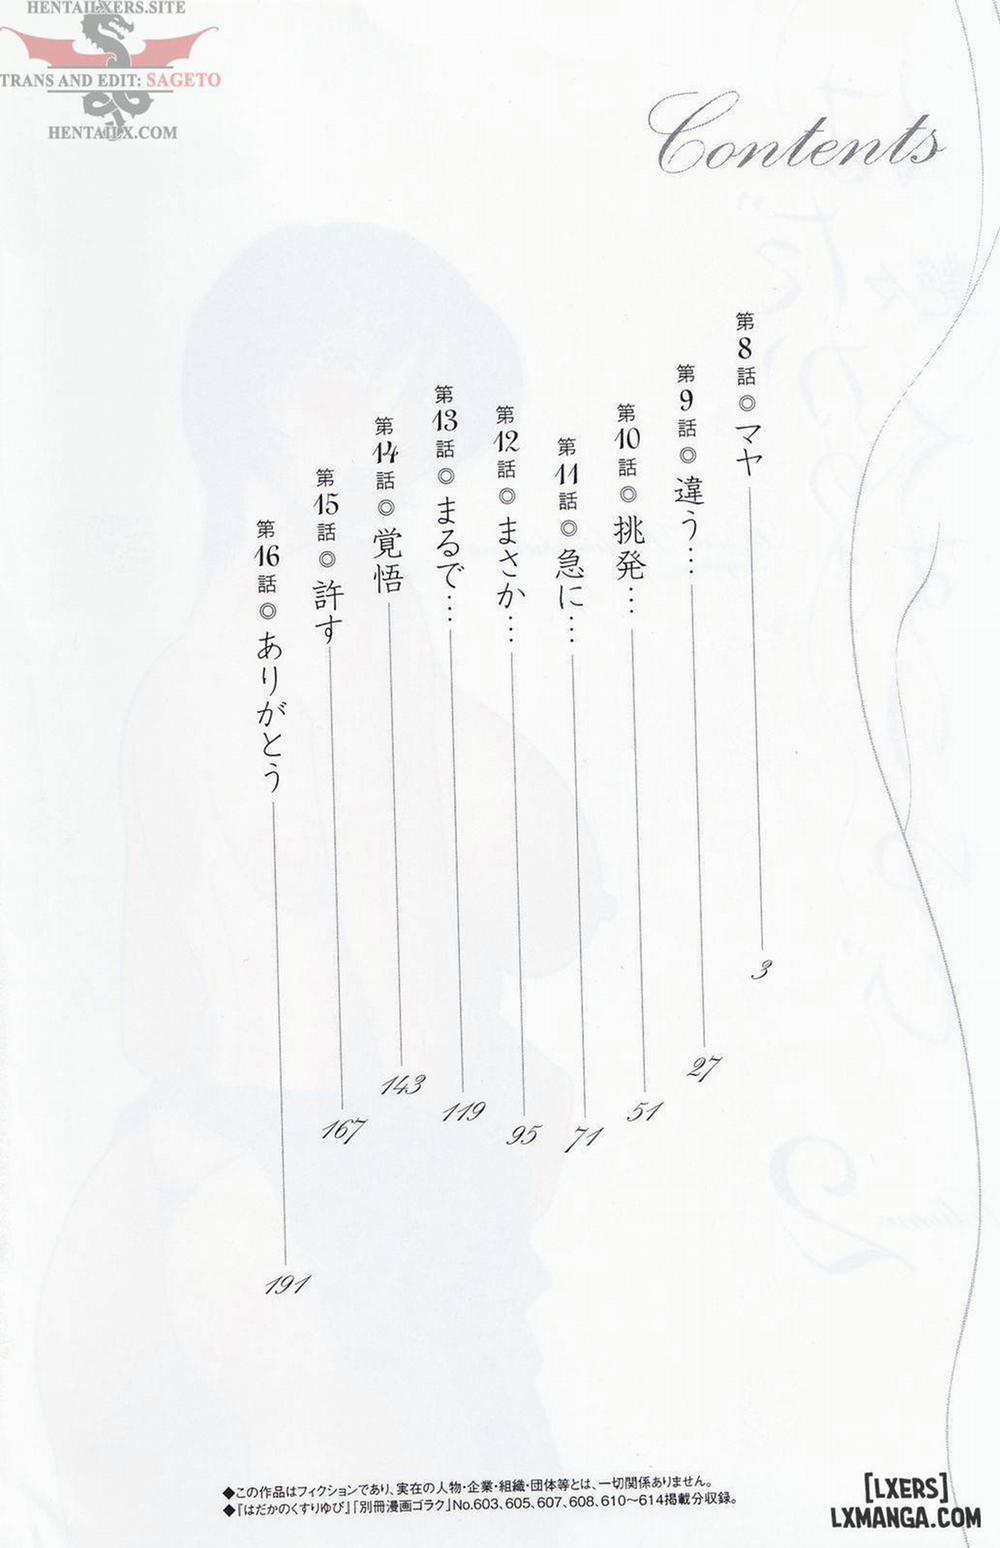 HENTAILXERS.SITE
TRANS AND EDIT: SAGETO
HENTAILX.COM
Contents
第8話◎マヤ 3
第9話◎違う… 27
第10話◎挑発… 51
第11話◎急に… 71
第12話◎まさか… 95
第13話◎まるで… 119
第14話◎覚悟 143
第15話◎許す 167
第16話◎ありがとう 191
◆この作品はフィクションであり、実在の人物・企業・組織・団体等とは、一切関係ありません。
◆『はだかのくすりゆび』「別冊漫画ゴラク」No.603、605、607、608、610〜614掲載分収録。
[LXERS]
LXMANGA.COM